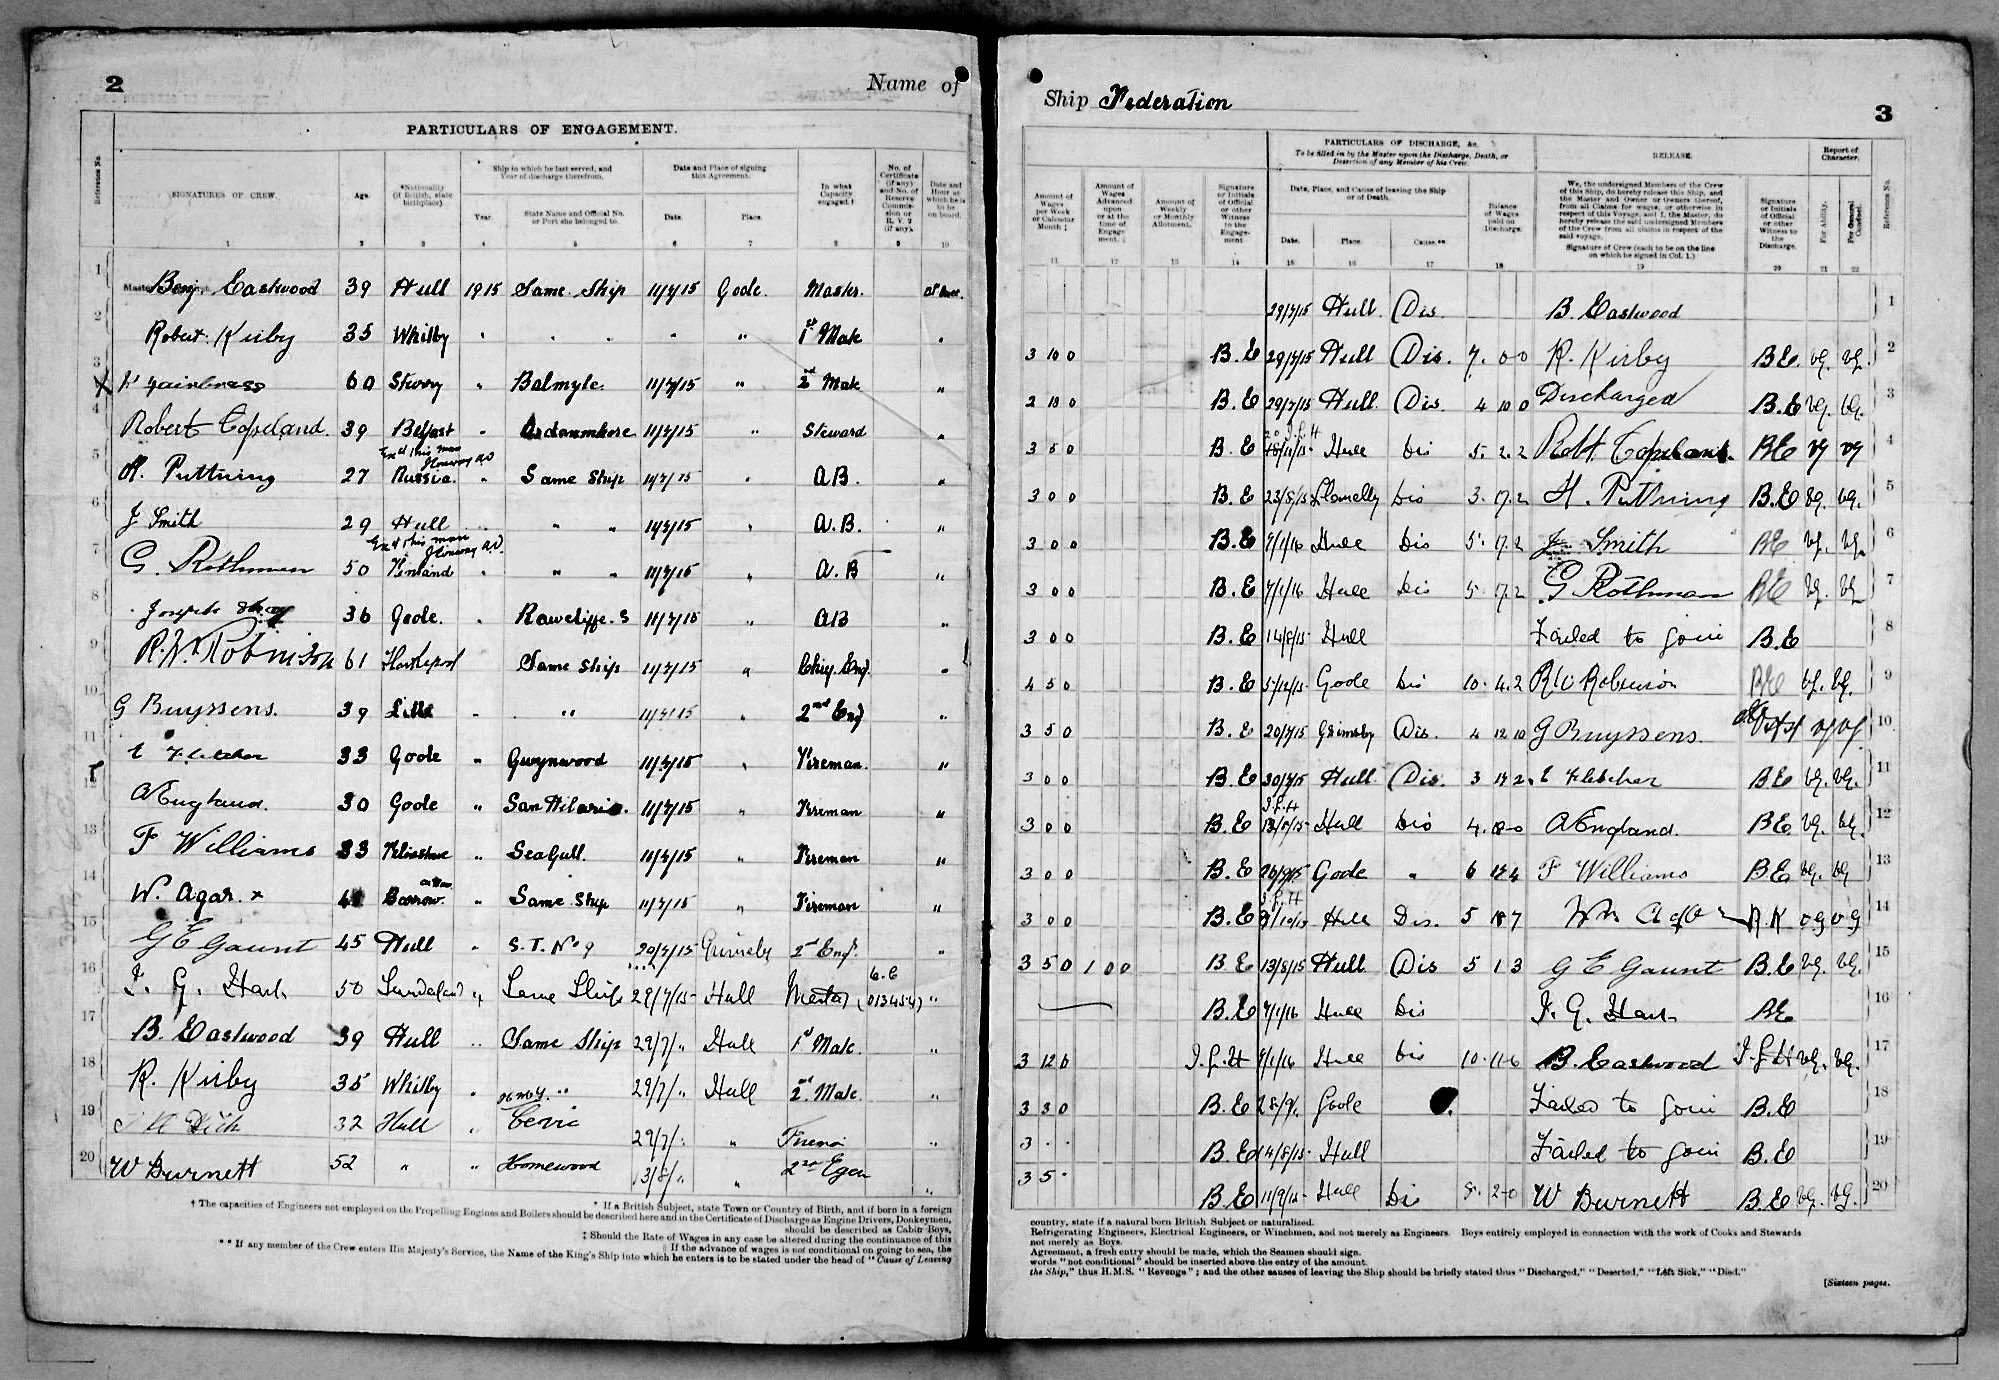 2 Name of
PARTICULARS OF ENGAGEMENT.
Reference No.
SIGNATURES OF CREW.
Age.
*Nationality (If British, state birthplace).
Ship in which he last served, and Year of discharge therefrom.
Year.
State Name and Official No. or Port she belonged to.
Date and Place of signing this Agreement.
Date.
Place.
In what Capacity engaged.†
No. of Certificate (if any) and No. of Reserve Commission or R.V.2 (if any).
Date and Hour at which he is to be on board.
1 2 3 4 5 6 7 8 9 10
1 Benj. Eastwood 39 Hull 1915 Same Ship 11/7/15 Goole. Master.
2 Robert Kirby 35 Whitby " 1st Mate
3 60 " Balmyle. 11/7/15 " 2nd Mate "
4 Robert Copeland. 39 Belfast " 11/7/15 " Steward "
5 H. Puttning 27 Russia. " Same Ship 11/7/15 " A.B. "
6 J Smith 29 Hull " " 11/7/15 " A.B. "
7 G. Rothman 50 Finland " " " 11/7/15 " A.B "
8 Joseph 36 Goole. " Rawcliffe. S 11/7/15 " AB "
9 R.W. Robinson 61 Hartlepool Same Ship 11/7/15 " Chief Eng. "
10 G Buyssens. 39 " " 11/7/15 " 2nd Eng "
11 E Fletcher 33 Goole " Gwynwood 11/7/15 " Fireman. "
12 A England. 30 Goole " San Hilario. 11/7/15 " Fireman "
13 F Williams 33 " Seagull. 11/7/15 " Fireman "
14 W. Agar. x Barrow. " Same Ship 11/7/15 " Fireman "
15 G E Gaunt 45 Hull " S.T. No 9 20/7/15 Grimsby 2nd Eng. "
16 50 Sunderland " Same Ship 29/7/15 Hull Master "
17 B. Eastwood 39 Hull " Same Ship 29/7/" Hull 1st Mate. "
18 R. Kirby 35 Whitby " " 29/7/" Hull 2nd Mate. "
19 32 Hull " Cevic 29/7/" " "
20 W Burnett 52 " " Homewood 13/8/" " "
* If a British Subject, state Town or Country of Birth, and if born in a foreign
† The capacities of Engineers not employed on the Propelling Engines and Boilers should be described here and in the Certificate of Discharge as Engine Drivers, Donkeymen,
should be described as Cabin Boys,
‡ Should the Rate of Wages in any case be altered during the continuance of this
|| If the advance of wages is not conditional on going to sea, the
** If any member of the Crew enters His Majesty's Service, the Name of the King's Ship into which he enters is to be stated under the head of "Cause of Leaving
Ship Federation 3
PARTICULARS OF DISCHARGE, &c.
To be filled in by the Master upon the Discharge, Death, or Desertion of any Member of his Crew.
RELEASE.
Report of Character.
Amount of Wages per Week or Calendar Month ‡
Amount of Wages Advanced upon or at the time of Engagement.
Amount of Weekly or Monthly Allotment.
Signature or Initials of Official or other Witness to the Engagement
Date, Place, and Cause of leaving the Ship or of Death.
Date.
Place.
Cause.**
Balance of Wages paid on Discharge.
We, the undersigned Members of the Crew of this Ship, do hereby release this Ship, and the Master and Owner or Owners thereof, from all Claims for wages, or otherwise in respect of this Voyage, and I, the Master, do hereby release the said undersigned Members of the Crew from all claims in respect of the said voyage.
Signature of Crew (each to be on the line on which he signed in Col. 1.)
Signature or Initials of Official or other Witness to the Discharge.
For Ability.
For General Conduct.
Reference No.
11 12 13 14 15 16 17 18 19 20 21 22
29/7/15 Hull Dis. B. Eastwood 1
3 10 0 B. E 29/7/15 Hull Dis. 7. 0 0 R. Kirby B E. VG. VG. 2
B. E 29/7/15 Hull. Dis. 4 10 0 Discharged B.E VG. VG. 3
3 5 0 B. E Hull Dis 5. 2. 2 Robt Copeland. BE VG VG 4
3 0 0 B. E 23/8/15 Llanelly Dis 3. 17. 2 H. Puttning B.E VG. VG. 5
3 0 0 B. E 7/1/16 Hull Dis 5. 17. 2 J Smith BE VG. VG. 6
3 0 0 B. E 7/1/16 Hull Dis 5. 17. 2 G Rothman BE VG. VG 7
3 0 0 B. E 14/8/15 Hull Failed to join B.E 8
4 5 0 B. E 5/12/15 Goole Dis 10. 4. 2 R W Robinson BE VG. VG. 9
3 5 0 B. E 20/7/15 Grimsby Dis. 4 12 10 G Buyssens. VG VG 10
3 0 0 B. E 30/7/15 Hull Dis. 3 E Fletcher B E VG. VG. 11
3 0 0 B. E Hull Dis A England. B E VG. VG. 12
3 0 0 B. E Goole " 6 F Williams B E. VG. VG 13
3 0 0 B. E Hull Dis. 5 18 7 R. K VG VG 14
3 5 0 1 0 0 B E 13/8/15 Hull Dis 5 1 3 G E Gaunt B.E VG. VG. 15
B. E 7/1/16 Hull Dis BE 16
3 12 6 7/1/16 Hull Dis 10. 11 6 B. Eastwood VG. VG. 17
B. E Goole Failed to join B.E 18
3 B. E 14/8/15 Hull Failed to join B.E 19
3 5 B E 11/9/15 Hull Dis W Burnett B.E VG. VG. 20
country, state if a natural born British Subject or naturalized.
Refrigerating Engineers, Electrical Engineers, or Winchmen, and not merely as Engineers. Boys entirely employed in connection with the work of Cooks and Stewards
not merely as Boys.
Agreement, a fresh entry should be made, which the Seamen should sign.
words "not conditional" should be inserted above the entry of the amount.
the Ship," thus H.M.S. "Revenge"; and the other causes of leaving the Ship should be briefly stated thus "Discharged," "Deserted," "Left Sick," "Died."
[Sixteen pages.